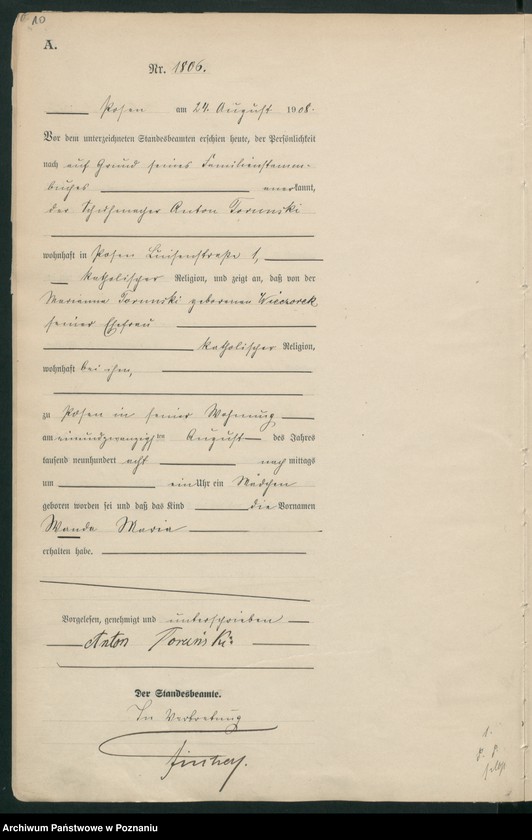 10
A.
Nr. 1806.
Posen am 24. August 1908.
Vor dem unterzeichneten Standesbeamten erschien heute, der Persönlichkeit
nach auf Grund seines Familienstamm-
buches anerkannt,
der Schuhmacher Anton Torunski
wohnhaft in Posen Luisenstraße 1,
katholischer Religion, und zeigt an, daß von der
Marianna Torunski geborenen Wieczorek
seiner Ehefrau
katholischer Religion,
wohnhaft bei ihm,
zu Posen in seiner Wohnung
am einundzwanzigsten August des Jahres
tausend neunhundert acht nachmittags
um ein Uhr ein Mädchen
geboren worden sei und daß das Kind die Vornamen
Wanda Maria
erhalten habe.
Vorgelesen, genehmigt und unterschrieben
Anton Toruński
Der Standesbeamte.
In Vertretung
Archiwum Państwowe w Poznaniu